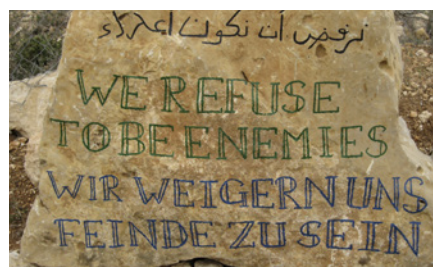 نرفض أن نكون اعداء
WE REFUSE
TO BE ENEMIES
WIR WEIGERN UNS
FEINDE ZU SEIN